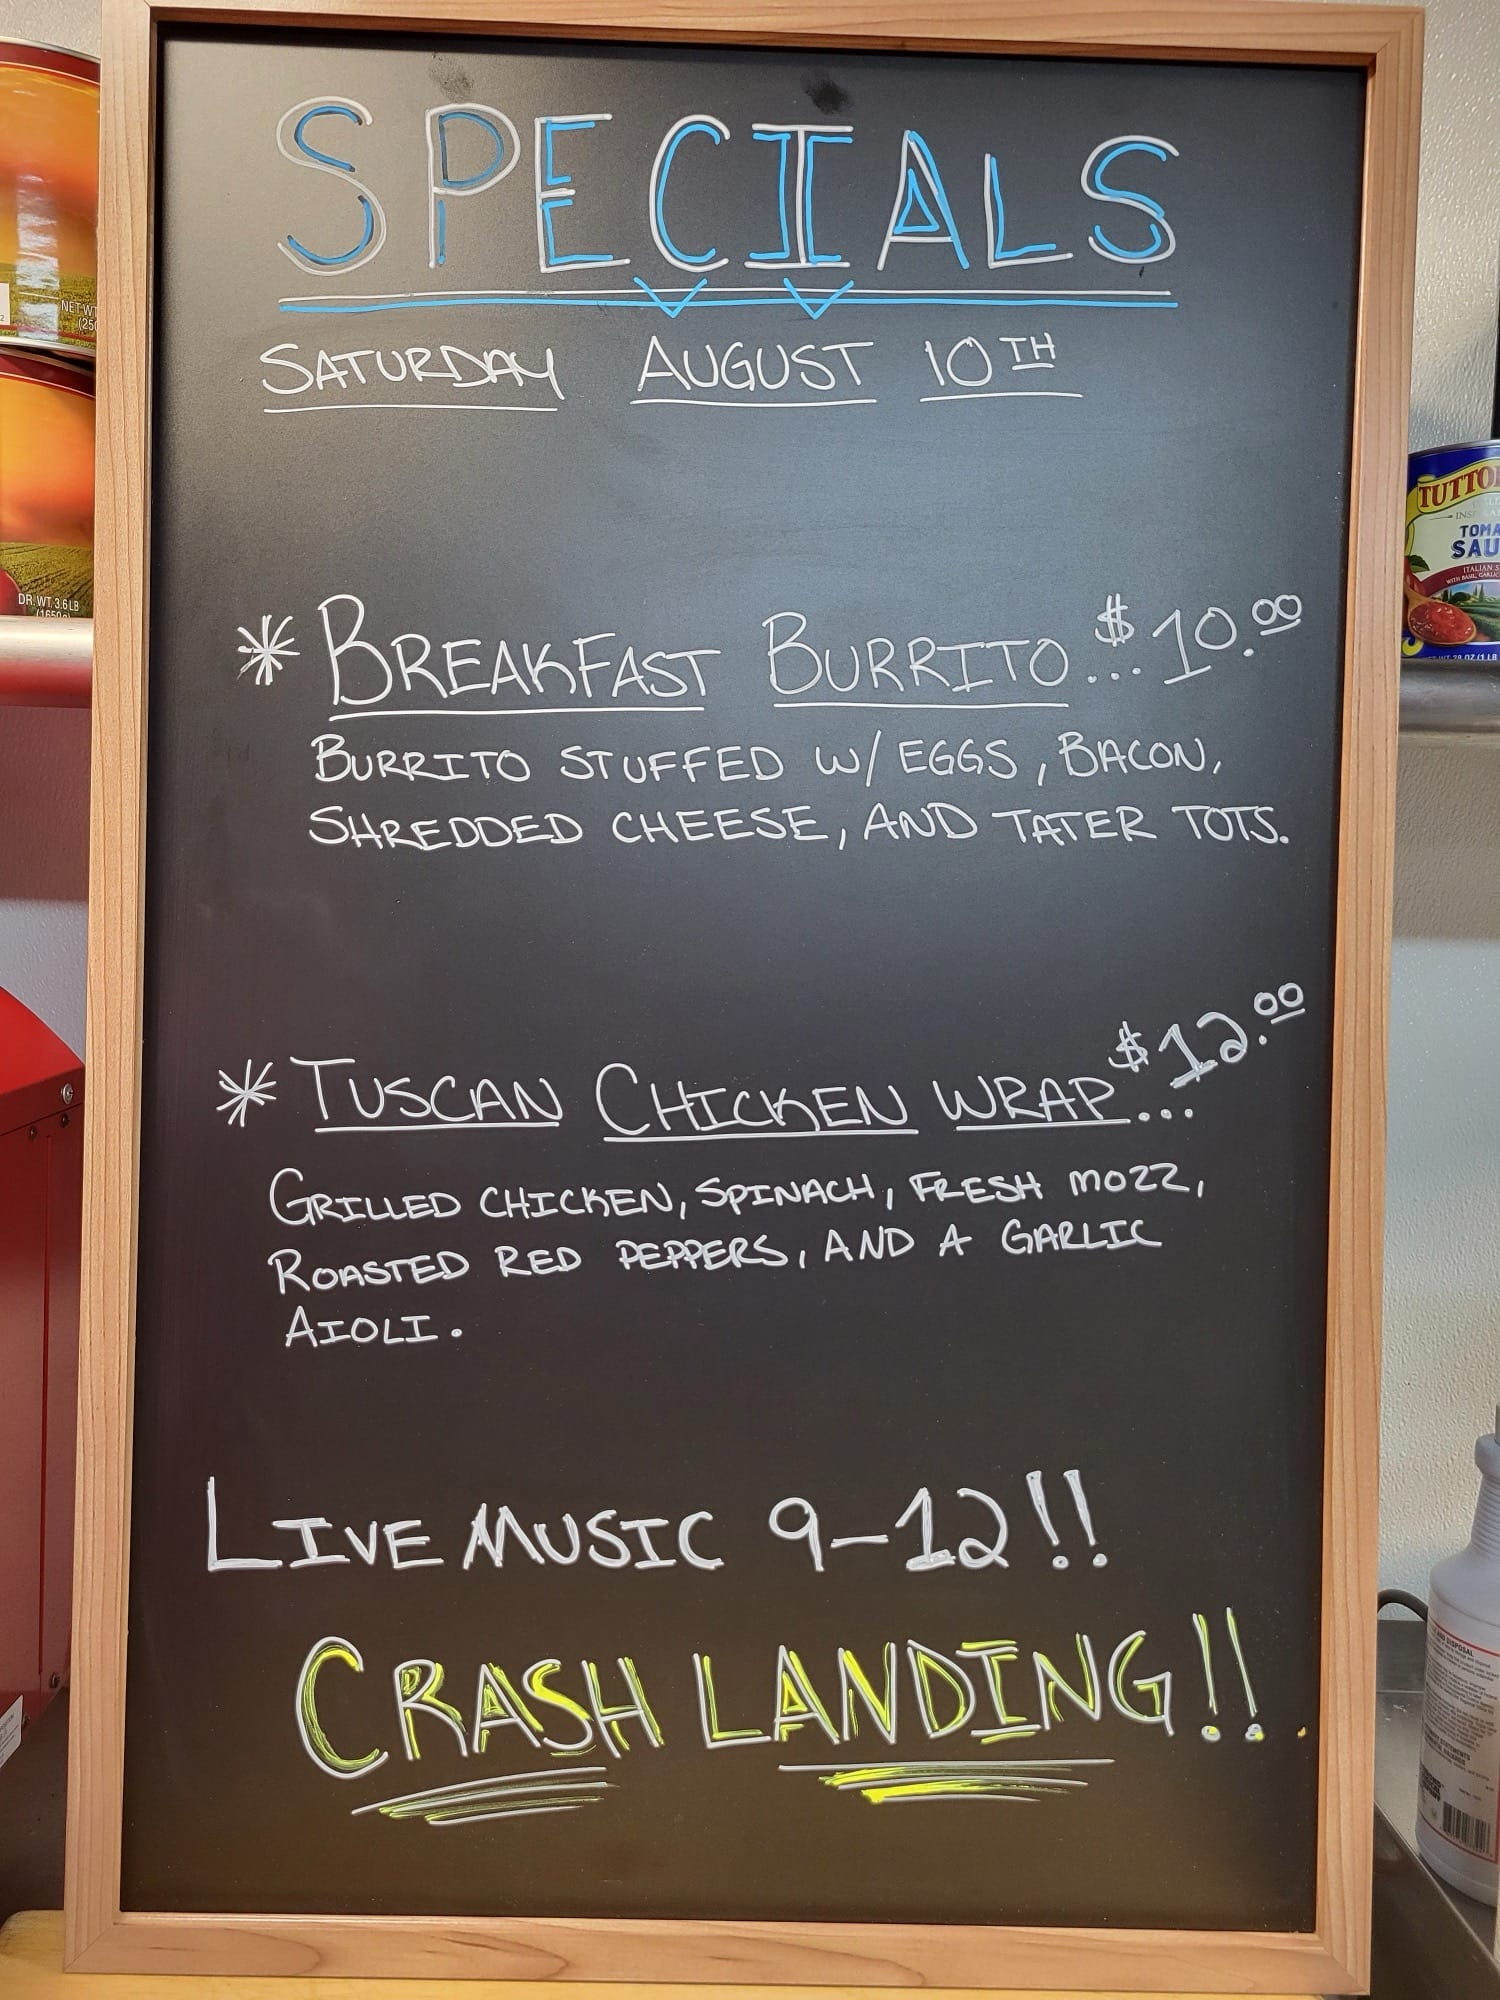 SPECIALS
SATURDAY AUGUST 10TH
* BREAKFAST BURRITO... $10.00
BURRITO STUFFED W/ EGGS, BACON,
SHREDDED CHEESE, AND TATER TOTS.
* TUSCAN CHICKEN WRAP... $12.00
GRILLED CHICKEN, SPINACH, FRESH MOZZ,
ROASTED RED PEPPERS, AND A GARLIC
AIOLI.
LIVE MUSIC 9-12!!
CRASH LANDING!!
NET WT
DR. WT. 3.6 LB
TUTTO
TOMA
SAU
ITALIAN S